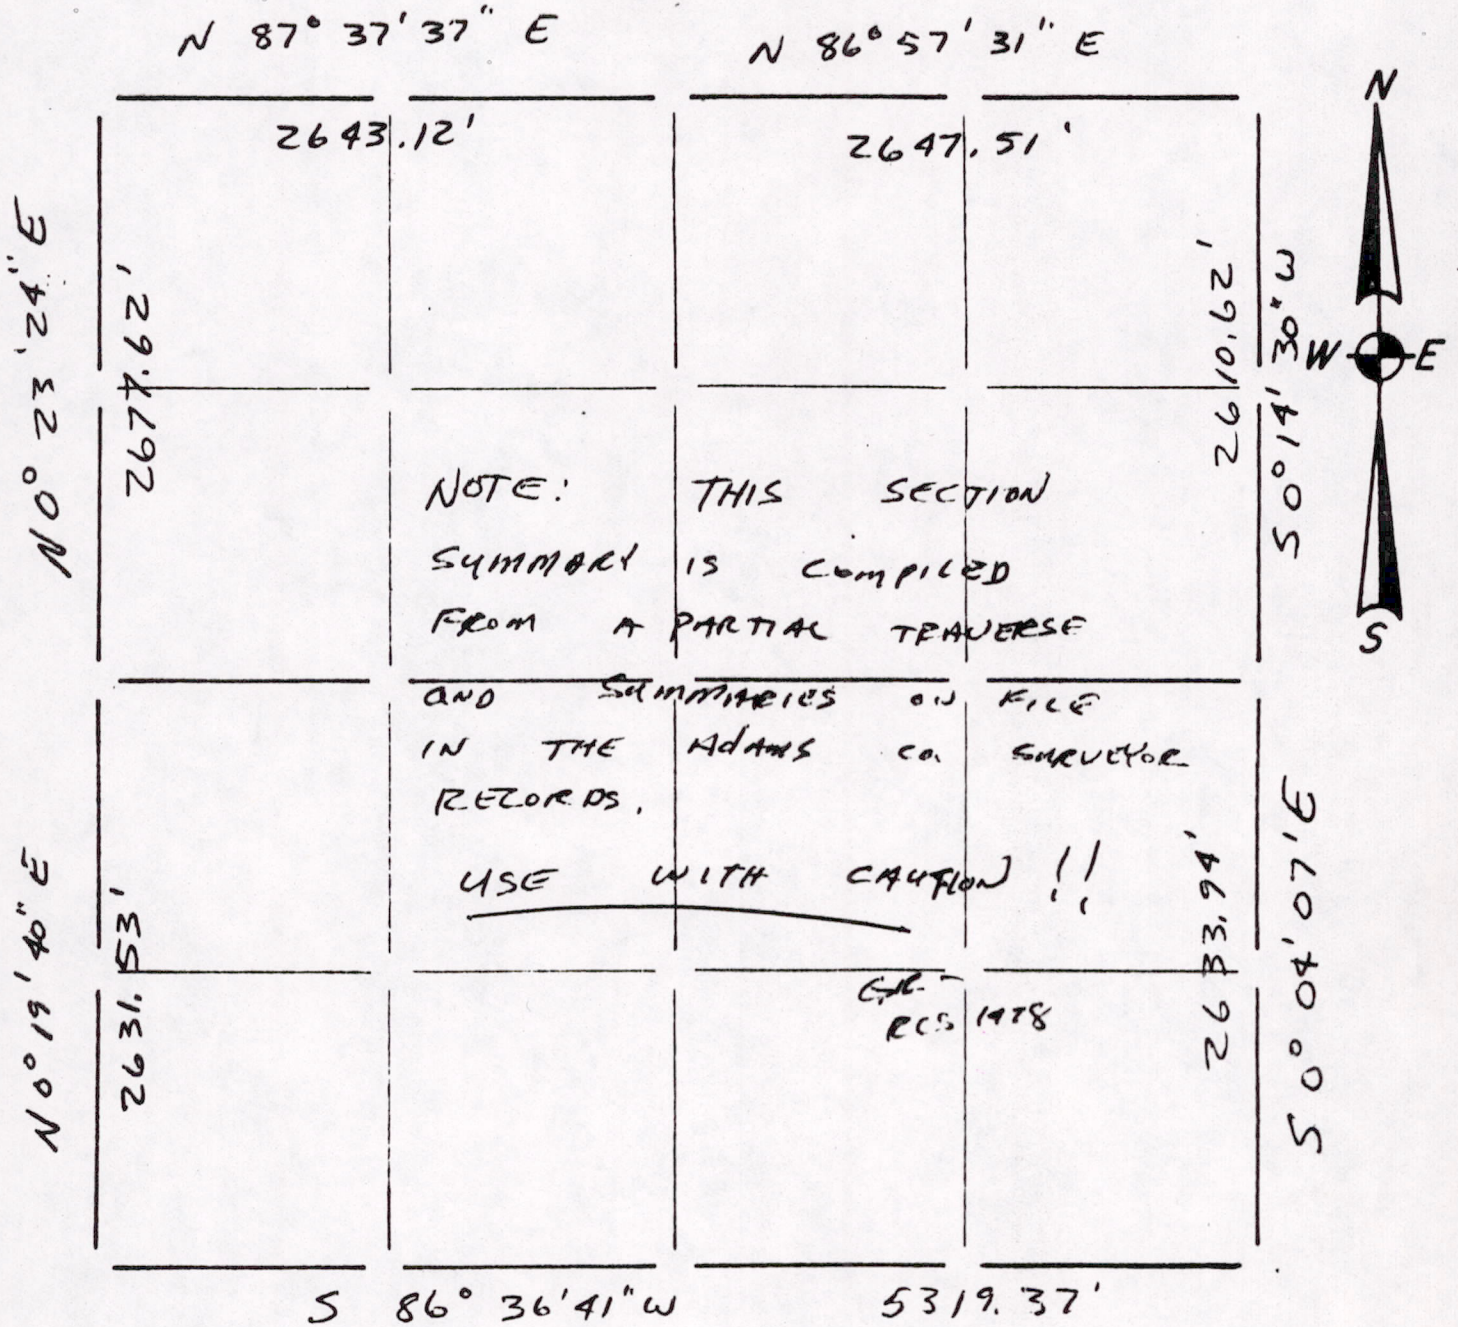 N 87° 37' 37" E
N 86° 57' 31" E
2643.12'
2647.51'
N
W E
S
N 0° 23' 24" E
2677.62'
2610.62'
S 0° 14' 30" W
NOTE: THIS SECTION
SUMMARY IS COMPILED
FROM A PARTIAL TRAVERSE
AND SUMMARIES ON FILE
IN THE ADAMS CO. SURVEYOR
RECORDS.
USE WITH CAUTION !!
N 0° 19' 40" E
2631.53'
2633.94'
S 0° 04' 07' E
S 86° 36' 41" W 5319.37'